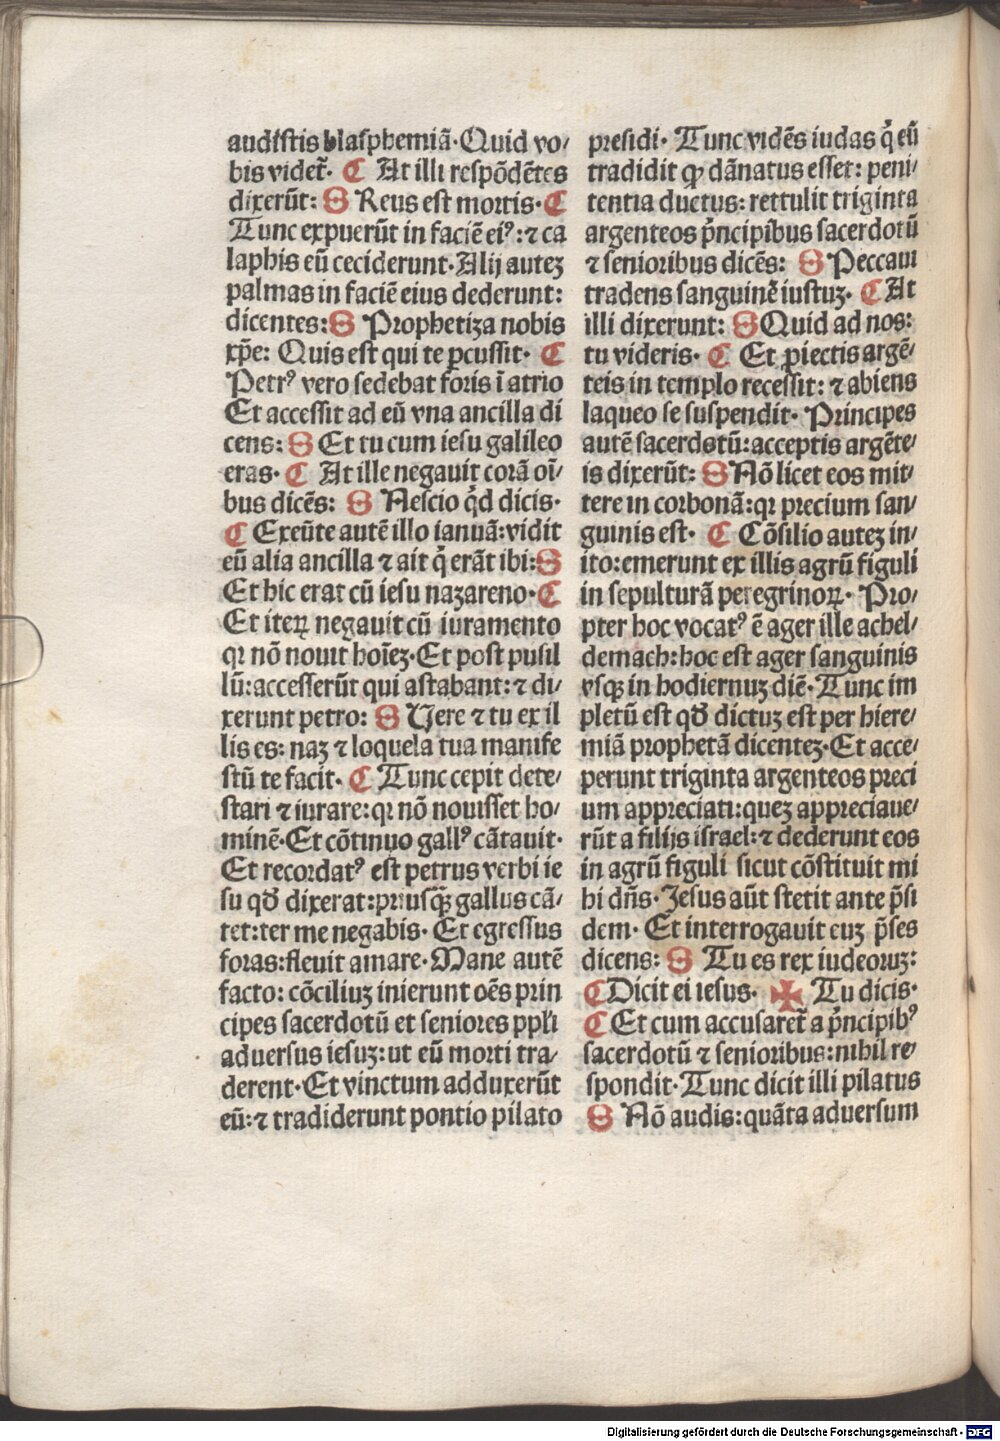 audistis blasphemiā. Quid vo/
bis videt̄. C At illi respōdētes
dixerūt: S Reus est mortis. C
Tunc expuerūt in faciē eiꝰ: ⁊ ca
laphis eū ceciderunt. Alij autez
palmas in faciē eius dederunt:
dicentes: S Prophetiza nobis
xp̄e: Quis est qui te ꝑcussit. C
Petrꝰ vero sedebat foris ī atrio
Et accessit ad eū vna ancilla di
cens: S Et tu cum iesu galileo
eras. C At ille negauit corā oī/
bus dicēs: S Nescio qd̄ dicis.
C Exeūte autē illo ianuā: vidit
eū alia ancilla ⁊ ait q̄ erāt ibi: S
Et hic erat cū iesu nazareno. C
Et iteꝝ negauit cū iuramento
qꝛ nō nouit hoīez. Et post pusil
lū: accesserūt qui astabant: ⁊ di/
xerunt petro: S Uere ⁊ tu ex il
lis es: naz ⁊ loquela tua manife
stū te facit. C Tunc cepit dete/
stari ⁊ iurare: qꝛ nō nouisset ho/
minē. Et cōtinuo gallꝰ cātauit.
Et recordatꝰ est petrus verbi ie
su qđ dixerat: priusqꝫ gallus cā/
tet: ter me negabis. Et egressus
foras: fleuit amare. Mane autē
facto: cōciliuz inierunt oēs prin
cipes sacerdotū et seniores ppłi
aduersus iesuz: ut eū morti tra/
derent. Et vinctum adduxerūt
eū: ⁊ tradiderunt pontio pilato
presidi. Tunc vidēs iudas q̄ eū
tradidit ꝙ dānatus esset: peni/
tentia ductus: rettulit triginta
argenteos p̄ncipibus sacerdotū
⁊ senioribus dicēs: S Peccaui
tradens sanguinē iustuz. C At
illi dixerunt: S Quid ad nos:
tu videris. C Et ꝓiectis argē/
teis in templo recessit: ⁊ abiens
laqueo se suspendit. Principes
autē sacerdotū: acceptis argēte/
is dixerūt: S Nō licet eos mit/
tere in corbonā: qꝛ precium san/
guinis est. C Cōsilio autez in/
ito: emerunt ex illis agrū figuli
in sepulturā peregrinoꝝ. Pro/
pter hoc vocatꝰ ē ager ille achel/
demach: hoc est ager sanguinis
vsqꝫ in hodiernuz diē. Tunc im
pletū est qđ dictuz est per hiere/
miā prophetā dicentez. Et acce/
perunt triginta argenteos preci
um appreciati: quez appreciaue/
rūt a filijs israel: ⁊ dederunt eos
in agrū figuli sicut cōstituit mi
hi dn̄s. Jesus aūt stetit ante p̄si
dem. Et interrogauit euz p̄ses
dicens: S Tu es rex iudeoruz:
C Dicit ei iesus. ✠ Tu dicis.
C Et cum accusaret̄ a p̄ncipibꝰ
sacerdotū ⁊ senioribus: nihil re/
spondit. Tunc dicit illi pilatus
S Nō audis: quāta aduersum
Digitalisierung gefördert durch die Deutsche Forschungsgemeinschaft - DFG